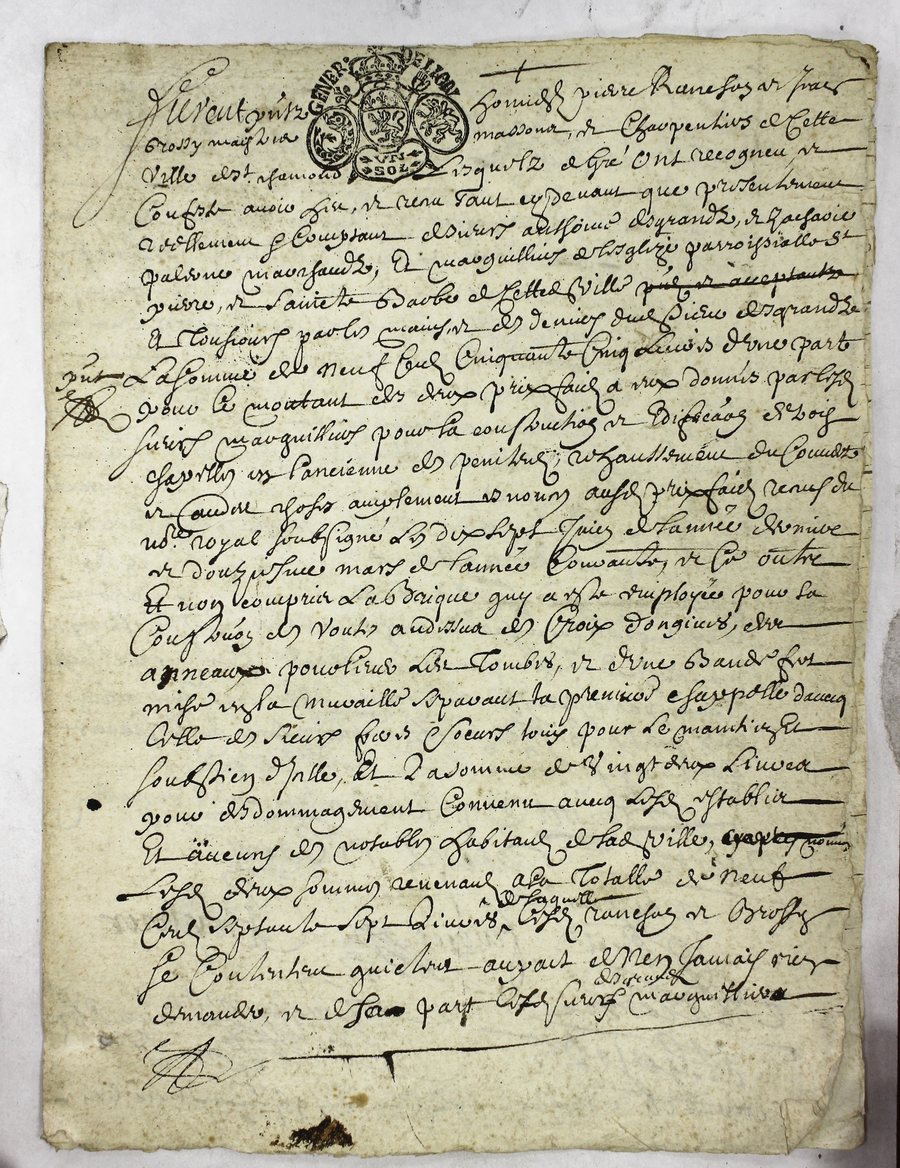 GENER DE LYON
UN SOL
Furent pntz honneste pierre et
Brossy maistre massons, et Charpentiers de Cette
Ville de St chamond Lesquelz de Gré Ont recogneu et
Confessé avoir heu, et receu Tant cydevant que presentement
reellement Comptant de sieurs anthoine desgrandz, et Zacharie
palerne marchandz, Et marguilliers de Lesglize parroissialle St
pierre, et Saincte Barbe de Cetted Ville
Et Tousiours par les mains, et des deniers dud Sieur desgrandz
La somme de neuf Cent Cinquante Cinq Livres dune part
pour le montant des deux prix faicts a eux donnés par lesd
sieurs marguilliers pour la construction et Ediffication de trois
chapelles en lancienne des penitens, rehaussement du Couvert
et autres choses amplement es noms ausd prix faicts receus du
nore royal soubsigné Les dix sept Juin de lannée derniere
et douziesme mars de lannée Courante, et Ce outre
Et non compris La Brique quy a esté employée pour la
Construction des voutes au dessus des Croix dogives, des
anneaux pour lever Les Tombes, et dune Bande fer
mise en la muraille separant la premiere chappelle davecq
Celle des sieurs Soeurs tous pour Le maintien Et
soubstien dicelle, Et La somme de Vingt deux Livres
pour desdommagement Convenu avecq Lesd establis
Et aucuns des notables habitans de lad Ville,
Lesd deux sommes revenant a la Totalle de neuf
Cent septante sept Livres, de laquelle Lesd et Brossy
Se Contentent quictent avec pact de Nen Jamais rien
demander, et de sa part Lesd sieurs desgrandz marguilliers